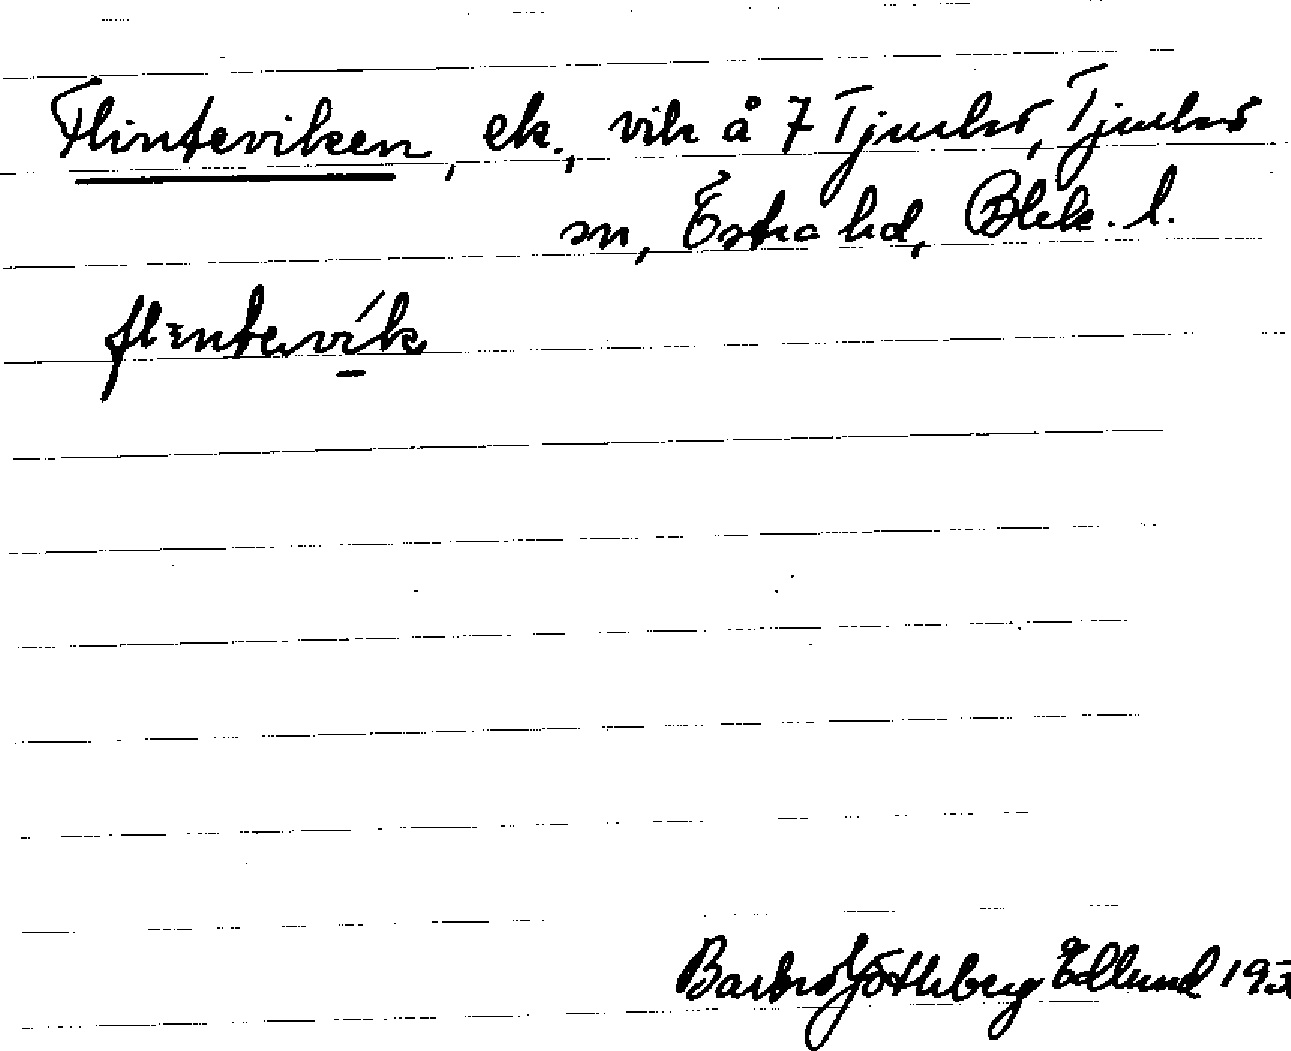 Flinteviken, ek., vik å 7 Tjurkö, Tjurkö
sn, Östra hd, Blek. l.
flintevík
Barbro Göthberg Edlund 193